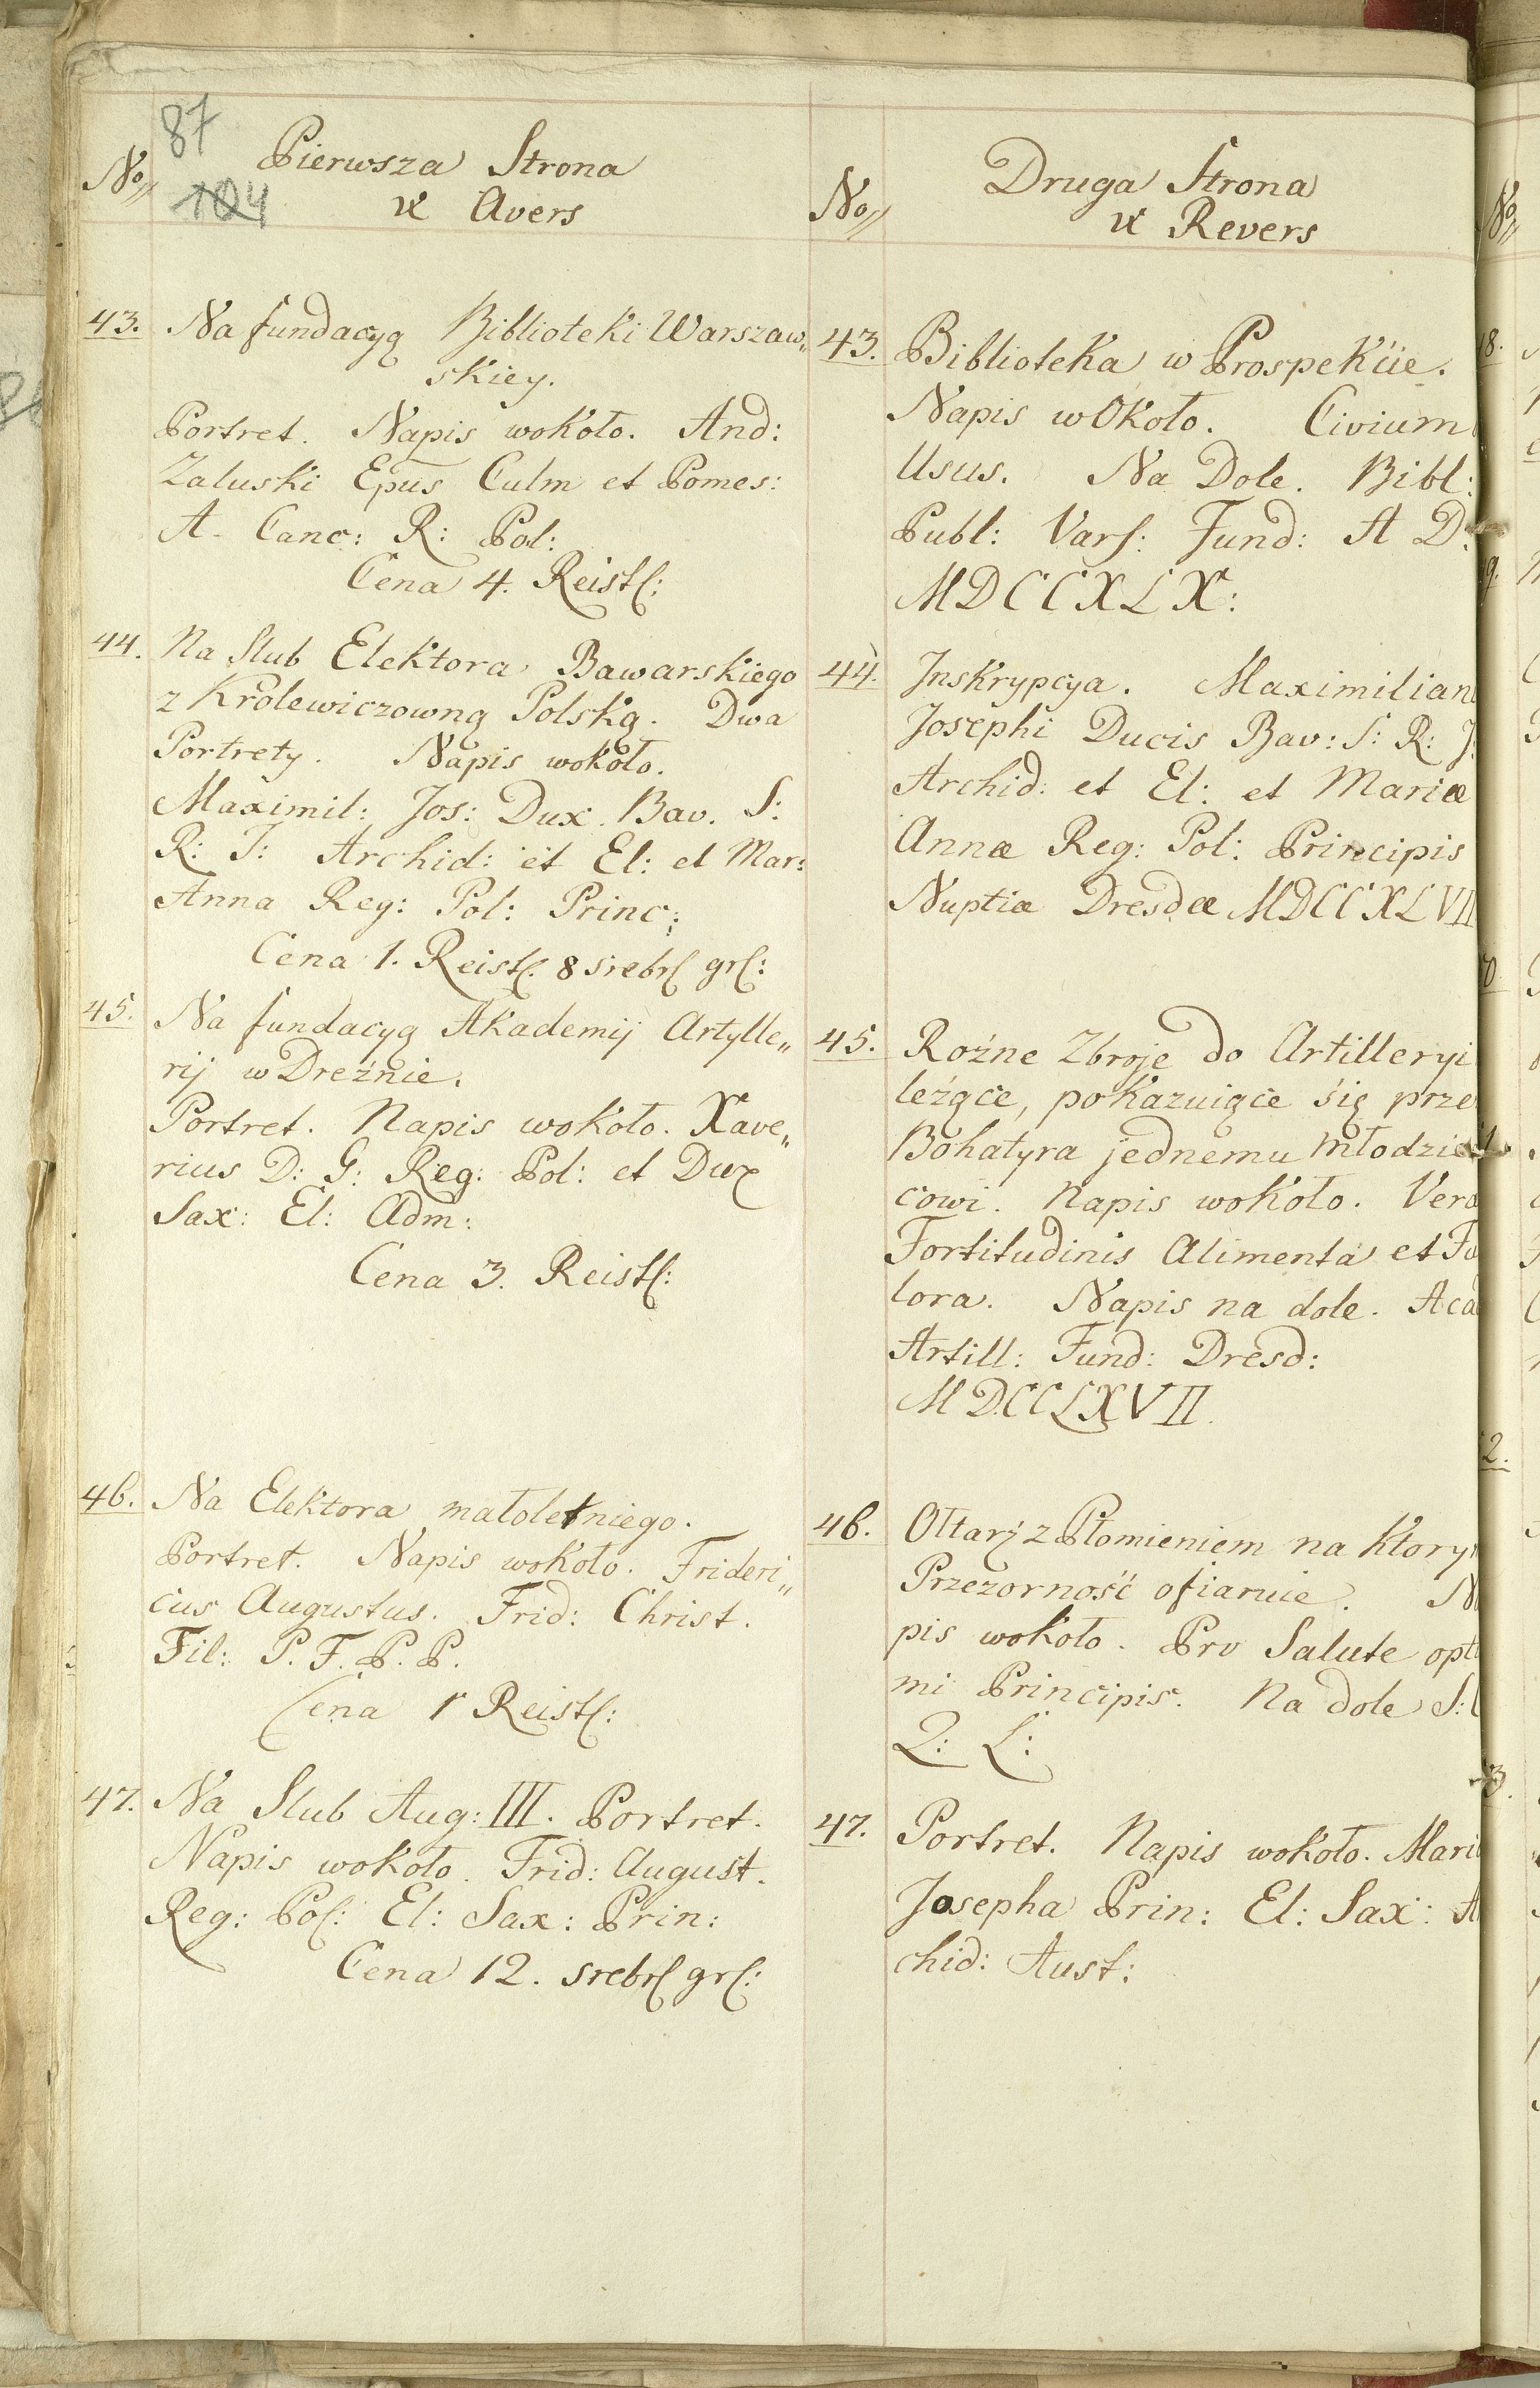 87
104
No
Pierwsza Strona
Avers
43. Na fundacyą Biblioteki Warszaw„
skiey.
Portret. Napis wokoło. And:
Zaluski Epus Culm et Pomes:
A. Canc: R: Pol:
Cena 4. Reistl:
44. Na Slub Elektora Bawarskiego
z Krolewiczowną Polską. Dwa
Portrety. Napis wokoło.
Maximil: Jos: Dux Bav. S:
R: J: Archid: et El: et Mar:
Anna Reg: Pol: Princ:
Cena 1. Reistl. 8 srebrl grl:
45. Na fundacyą Akademij Artylle„
rij w Dreźnie.
Portret. Napis wokoło. Xave„
rius D: G: Reg: Pol: et Dux
Sax: El: Adm:
Cena 3. Reistl:
46. Na Elektora małoletniego.
Portret. Napis wokoło. Frideri„
cus Augustus. Frid: Christ.
Fil: P. F. P. P.
Cena 1 Reistl:
47. Na Slub Aug: III. Portret.
Napis wokoło. Frid: August.
Reg: Pol: El: Sax: Prin:
Cena 12. srebrl grl:
No
Druga Strona
Revers
43. Biblioteka w Prospekcie.
Napis wOkoło. Civium
Usus. Na Dole. Bibl:
Publ: Vars: Fund: A D:
MDCCXLX:
44. Jnskrypcya. Maximilian
Josephi Ducis Bav: S: R: J:
Archid: et El: et Mariæ
Annæ Reg: Pol: Principis
Nuptiæ Dresdæ MDCCXLVII
45. Rożne Zbroje do Artilleryi
leżące, pokazuiące się prze
Bohatyra jednemu młodzie
cowi. Napis wokoło. Vera
Fortitudinis Alimenta et Fo
lora. Napis na dole. Aca
Artill: Fund: Dresd:
MDCCLXVII.
46. Ołtarz z Płomieniem na ktory
Przezorność ofiaruie. N
pis wokoło. Pro Salute opti
mi Principis. Na dole S:
Q: L:
47. Portret. Napis wokoło. Mari
Josepha Prin: El: Sax: A
chid: Aust: